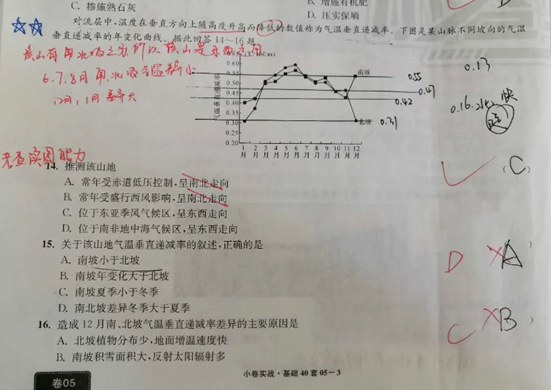 C. 掺施熟石灰
B. 增施有机肥
D. 压实保墒
对流层中,温度在垂直方向上随高度升高而降低的数值称为气温垂直递减率。下图是某山脉不同坡向的气温
垂直递减率的年变化曲线。据此回答14~16题。
该山有南北坡之分,所以该山是东西走向
6.7.8月南北坡差异小
12月,1月差异大
0.60
0.55
0.50
0.45
0.40
0.35
0.30
0.25
0.20
南坡
北坡
1月 2月 3月 4月 5月 6月 7月 8月 9月 10月 11月 12月
0.55
0.47
0.42
0.31
0.13
0.16
快
考查读图能力
14. 推测该山地
(C)
A. 常年受赤道低压控制,呈南北走向
B. 常年受盛行西风影响,呈南北走向
C. 位于东亚季风气候区,呈东西走向
D. 位于南非地中海气候区,呈东西走向
15. 关于该山地气温垂直递减率的叙述,正确的是
D A
A. 南坡小于北坡
B. 南坡年变化大于北坡
C. 南坡夏季小于冬季
D. 南北坡差异冬季大于夏季
16. 造成12月南、北坡气温垂直递减率差异的主要原因是
C B
A. 北坡植物分布少,地面增温速度快
B. 南坡积雪面积大,反射太阳辐射多
卷05
小卷实战·基础40套05-3